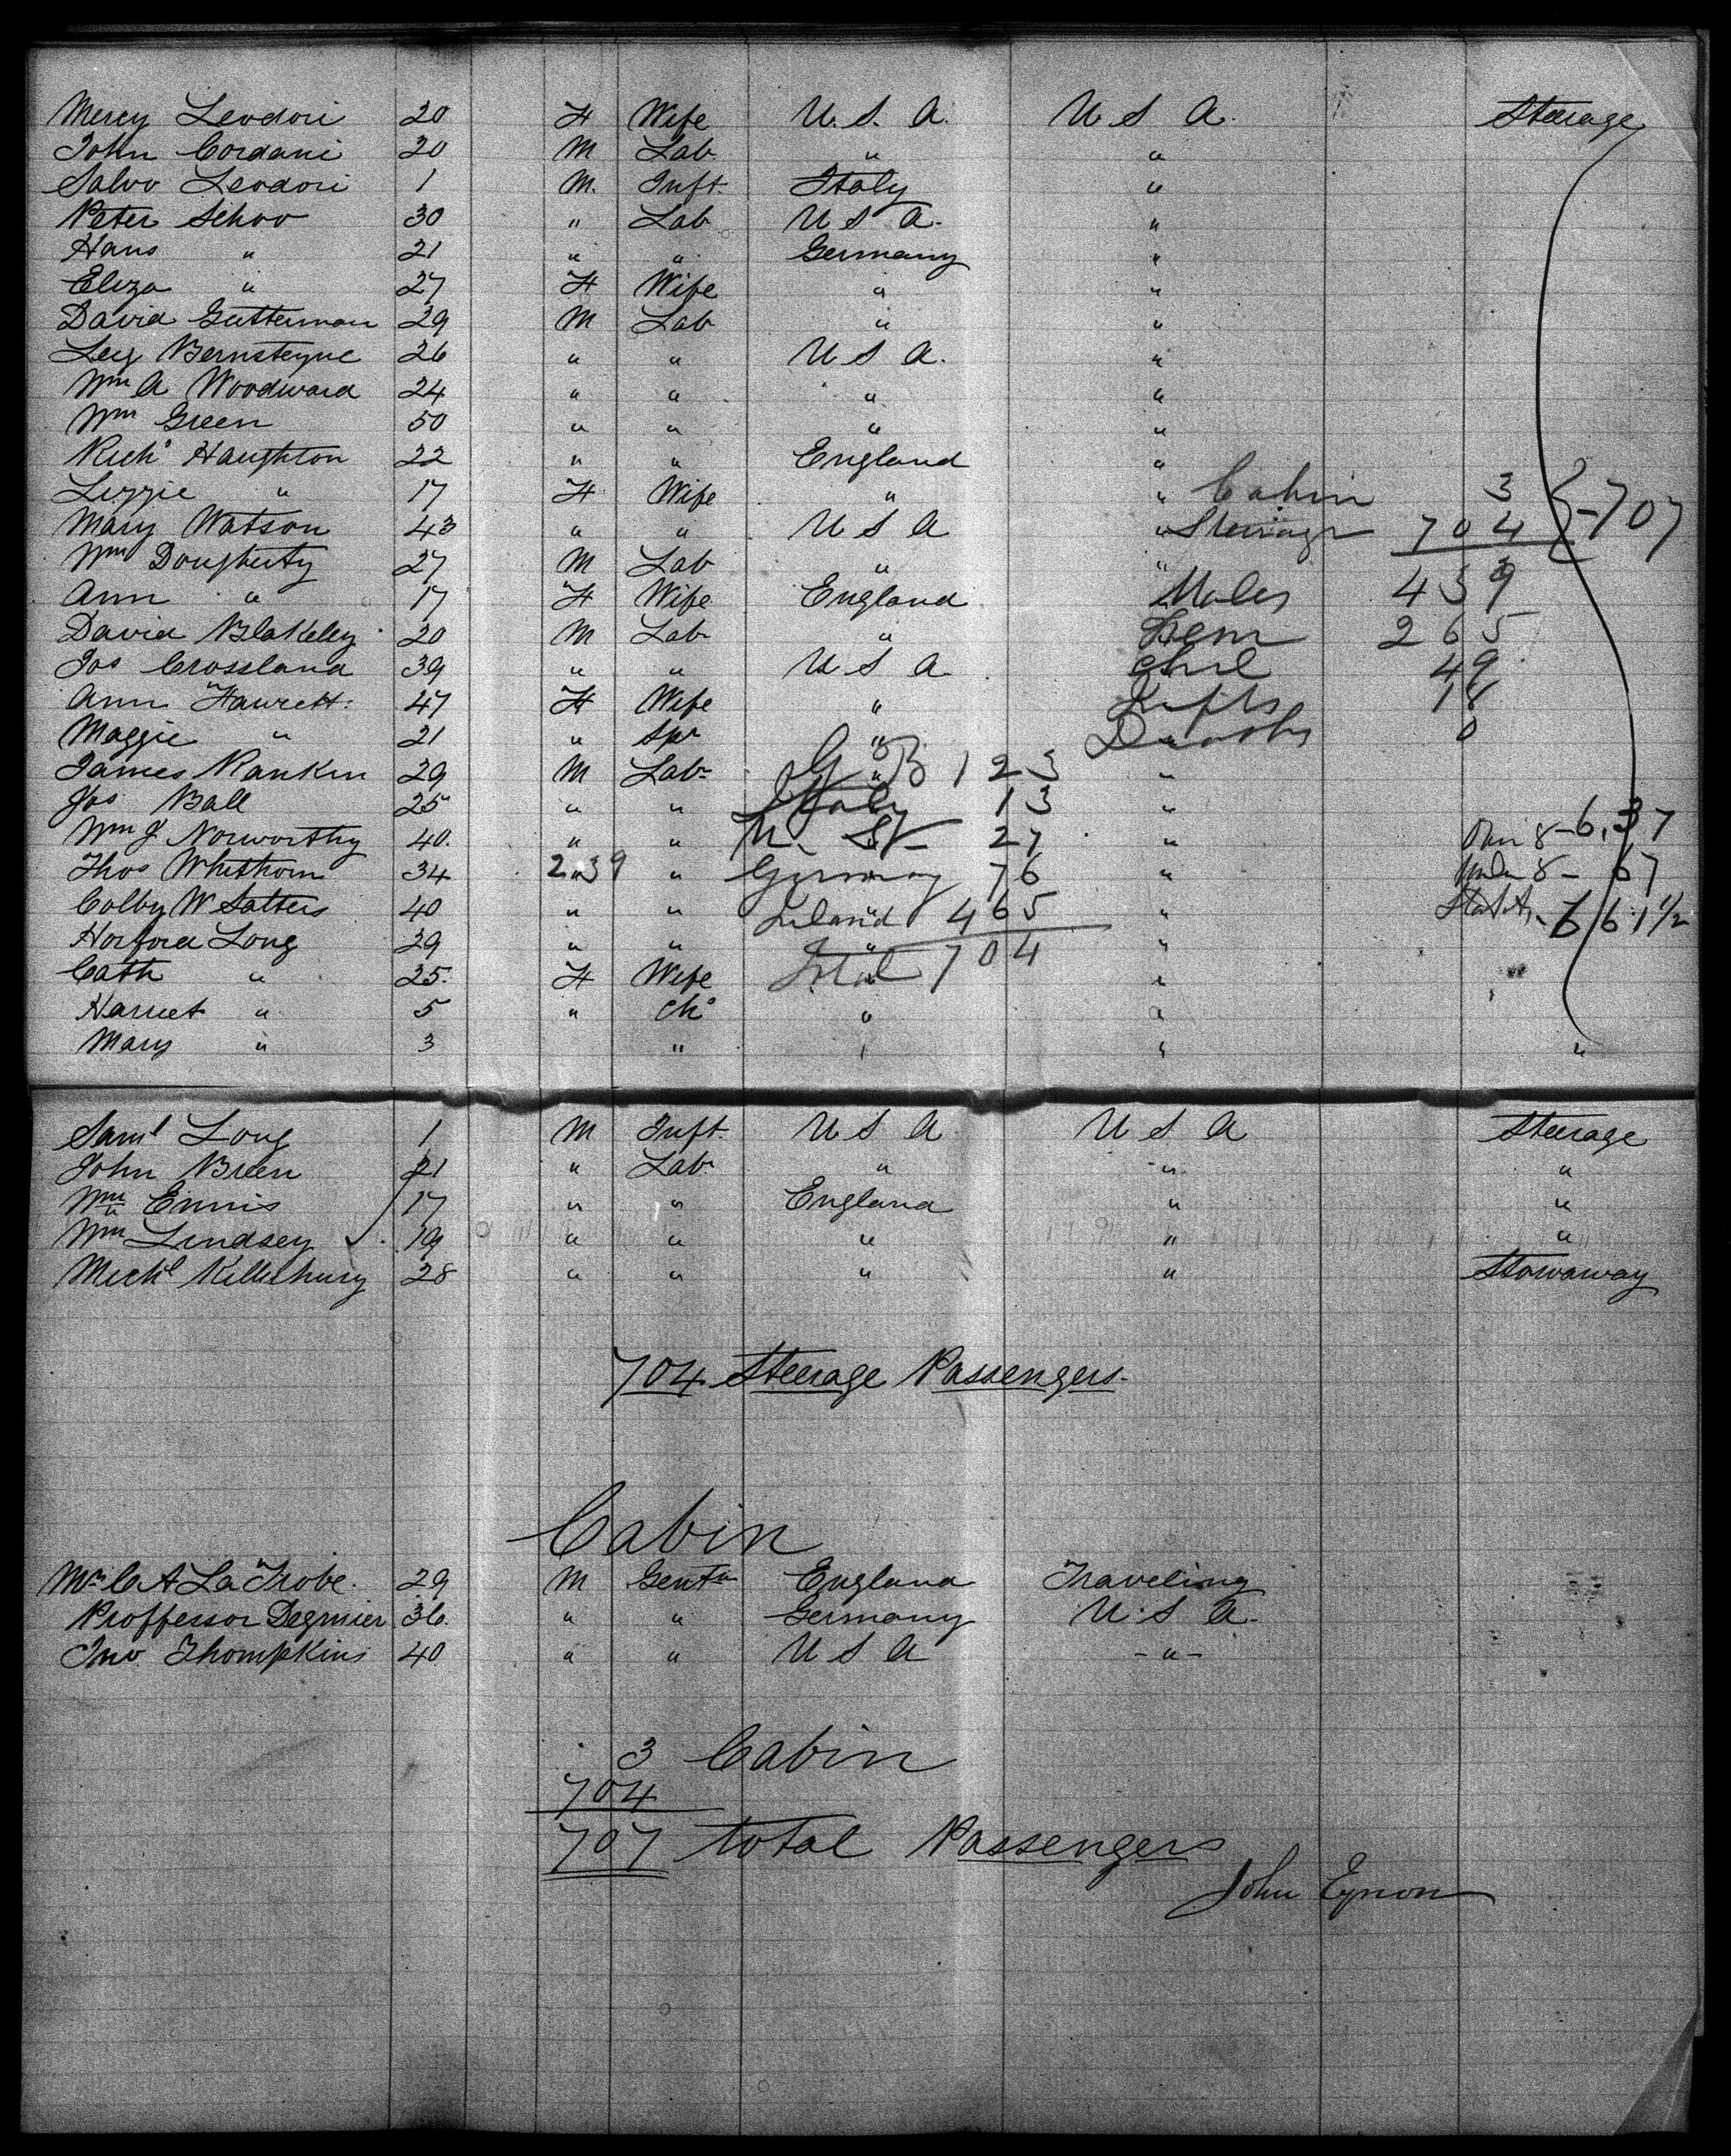 Mercy Leodori 20 F Wife U.S.A. U S A. Steerage
John Cordani 20 M Lab " "
Salvo Leodori 1 M. Inft. Italy "
Peter Schoo 30 " Lab U S A. "
Hans " 21 " " Germany "
Eliza " 27 F Wife " "
David Gutterman 29 M Lab " "
Ley Bernsteyne 26 " " U S A. "
Wm A Woodward 24 " " " "
Wm Green 50 " " " "
Richd Haughton 22 " " England "
Lizzie " 17 F Wife " " Cabin 3
Mary Watson 43 " " U S A " Steerage 704 } - 707
Wm Dougherty 27 M Lab " "
Ann " 17 F Wife England " Males 439
David Blakeley 20 M Lab " Fem 265
Jos Crossland 39 " " U S A Chil 49
Ann Fawcett 47 F Wife " Infts 18
Maggie " 21 " Spr " Deaths 0
James Rankin 29 M Lab " G B 123 "
Jos Ball 25 " " Italy 13 "
Wm J Norworthy 40. " " U. S 27 " 8 - 6,37
Thos Whithorn 34 239 " Germany 76 " Under 8 - 67
Colby W Satters 40 " " Ireland 465 " Statute - 661½
Horford Long 29 " " " "
Cath " 25. F Wife Total 704 "
Harriet " 5 " Chd " "
Mary " 3 " " " "
Saml Long 1 M Inft. U S A U S A Steerage
John Breen 21 " Lab " " "
Wm Ennis 17 " " England " "
Wm Lindsey 19 " " " " "
Michl Killerbury 28 " " " " Stowaway
704 Steerage Passengers.
Cabin
Mr C A La Trobe. 29 M Gentn England Traveling
Proffessor Degmier 36. " " Germany U. S A.
Jno Thompkins 40 " " U S A - " -
3 Cabin
704
707 total Passengers
John Eynon